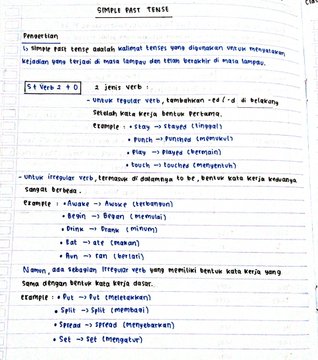 SIMPLE PAST TENSE
Pengertian
↳ simple past tense adalah kalimat tenses yang digunakan untuk menyatakan
kejadian yang terjadi di masa lampau dan telah berakhir di masa lampau.
S + Verb 2 + O 2 jenis verb :
- untuk regular verb, tambahkan -ed / -d di belakang
setelah kata kerja bentuk pertama.
example : • stay → stayed (tinggal)
• punch → punched (memukul)
• play → played (bermain)
• touch → touched (menyentuh)
- untuk irregular verb, termasuk di dalamnya to be, bentuk kata kerja keduanya
sangat berbeda.
example : • Awake → Awoke (terbangun)
• Begin → Began (memulai)
• Drink → Drank (minum)
• Eat → ate (makan)
• Run → ran (berlari)
Namun, ada sebagian irregular verb yang memiliki bentuk kata kerja yang
sama dengan bentuk kata kerja dasar.
example : • Put → Put (meletakkan)
• Split → Split (membagi)
• Spread → spread (menyebarkan)
• Set → set (mengatur)